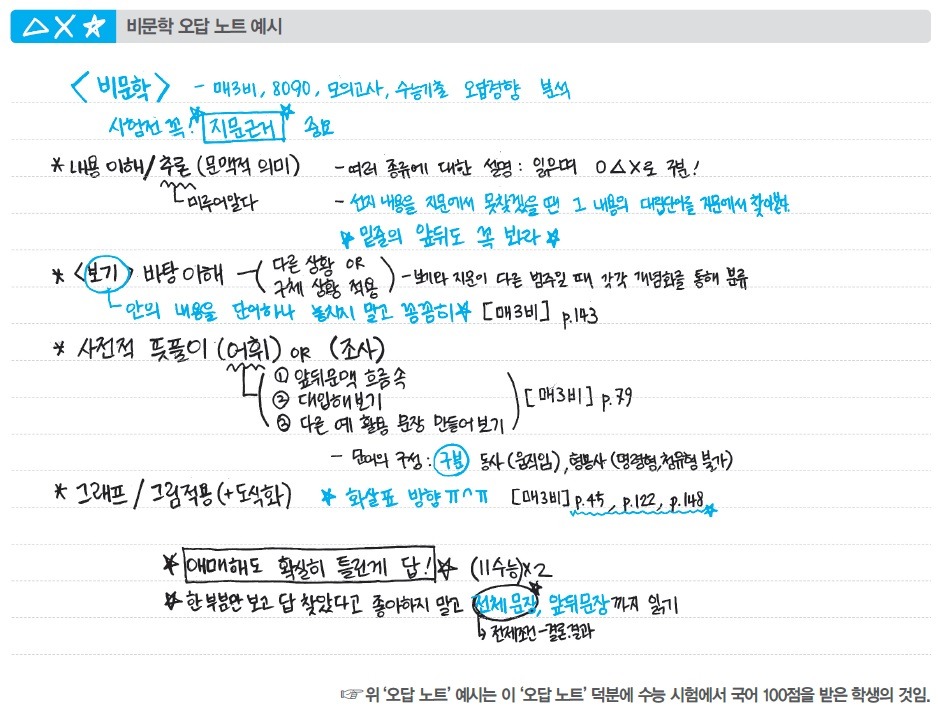 △X☆ 비문학 오답 노트 예시
<비문학> - 매3비, 8090, 모의고사, 수능기출 오답경향 분석
시험전 꼭! ☆지문근거☆ 중요
* 내용 이해/추론 (문맥적 의미) - 여러 종류에 대한 설명: 읽으며 O△X로 구분!
미루어알다 - 선지 내용을 지문에서 못찾겠을 땐 그 내용의 대립단어를 지문에서 찾아본다.
☆ 밑줄의 앞뒤도 꼭 봐라 ☆
* <보기> 바탕 이해 - (다른 상황 OR 구체 상황 적용) - 보기와 지문이 다른 범주일 때 각각 개념화를 통해 분류
안의 내용을 단어하나 놓치지 말고 꼼꼼히☆ [매3비] p.143
* 사전적 뜻풀이 (어휘) OR (조사)
① 앞뒤문맥 흐름 속
② 대입해보기 [매3비] p.79
③ 다른 예 활용 문장 만들어보기
- 단어의 구성: 구분 동사 (움직임), 형용사 (명령형, 청유형 불가)
* 그래프 / 그림적용 (+도식화) ☆ 화살표 방향 ㅠ^ㅠ [매3비] p.45, p.122, p.148☆
☆ 애매해도 확실히 틀린게 답! ☆ (11수능)×2
☆ 한 부분만 보고 답 찾았다고 좋아하지 말고 전체 문장, 앞뒤문장까지 읽기
↳ 전제조건-결론.결과
☞ 위 '오답 노트' 예시는 이 '오답 노트' 덕분에 수능 시험에서 국어 100점을 받은 학생의 것임.